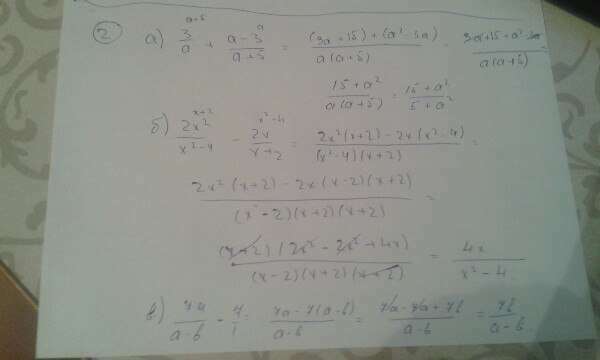 2 а) 3/a^(a+5) + (a-3)/(a+5)^a = ((3a+15)+(a²-3a))/(a(a+5)) = (3a+15+a²-3a)/(a(a+5))
(15+a²)/(a(a+5)) = (15+a²)/(5+a²)
б) 2x²/(x²-4)^(x+2) - 2x/(x+2)^(x²-4) = (2x²(x+2)-2x(x²-4))/((x²-4)(x+2)) =
(2x²(x+2)-2x(x-2)(x+2))/((x-2)(x+2)(x+2)) =
((x+2)(2x²-2x²+4x))/((x-2)(x+2)(x+2)) = 4x/(x²-4)
в) 7a/(a-b) - 7/1 = (7a-7(a-b))/(a-b) = (7a-7a+7b)/(a-b) = 7b/(a-b)